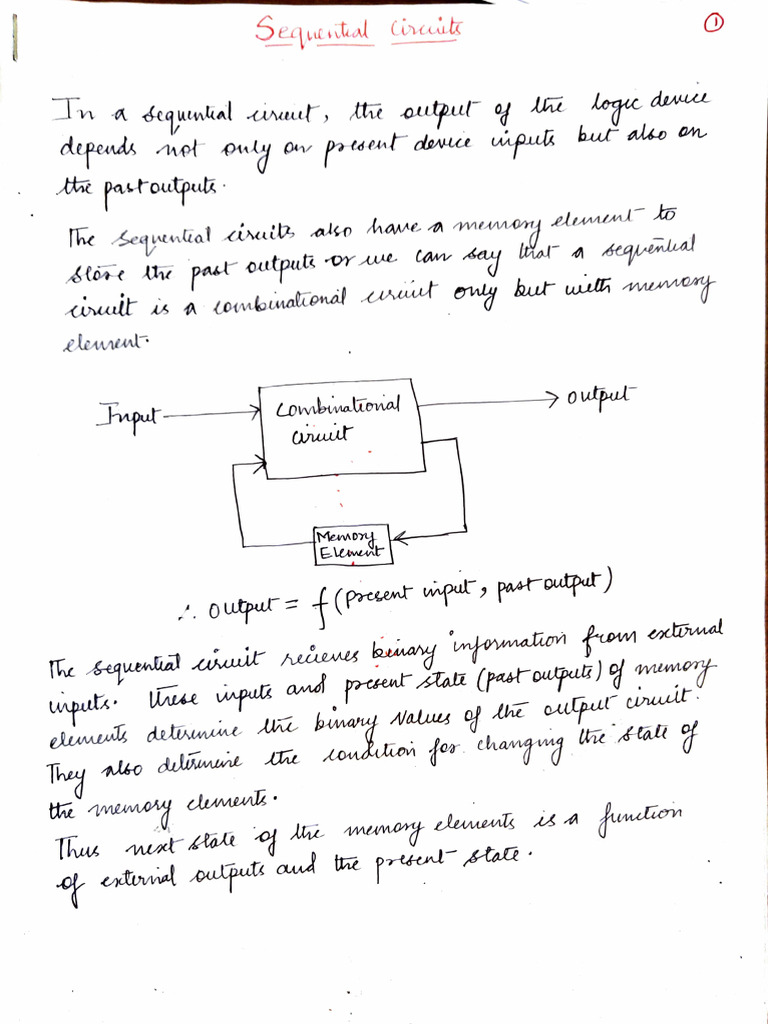 Sequential Circuits
1
In a sequential circuit, the output of the logic device
depends not only on present device inputs but also on
the past outputs.
The sequential circuits also have a memory element to
store the past outputs or we can say that a sequential
circuit is a combinational circuit only but with memory
element.
Input
Combinational
circuit
output
Memory
Element
∴ output = f (present input, past output)
The sequential circuit recieves binary information from external
inputs. These inputs and present state (past outputs) of memory
elements determine the binary values of the output circuit.
They also determine the condition for changing the state of
the memory elements.
Thus next state of the memory elements is a function
of external outputs and the present state.